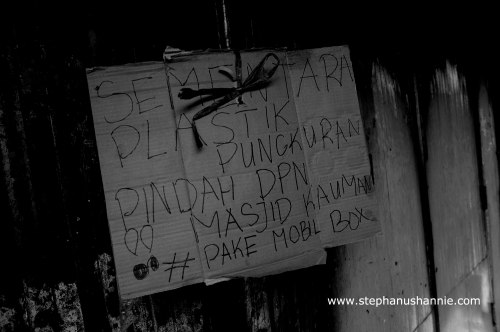 SEMENTARA
PLASTIK
PUNGKURAN
PINDAH DPN
MASJID KAUMAN
# PAKE MOBIL BOX
www.stephanushannie.com